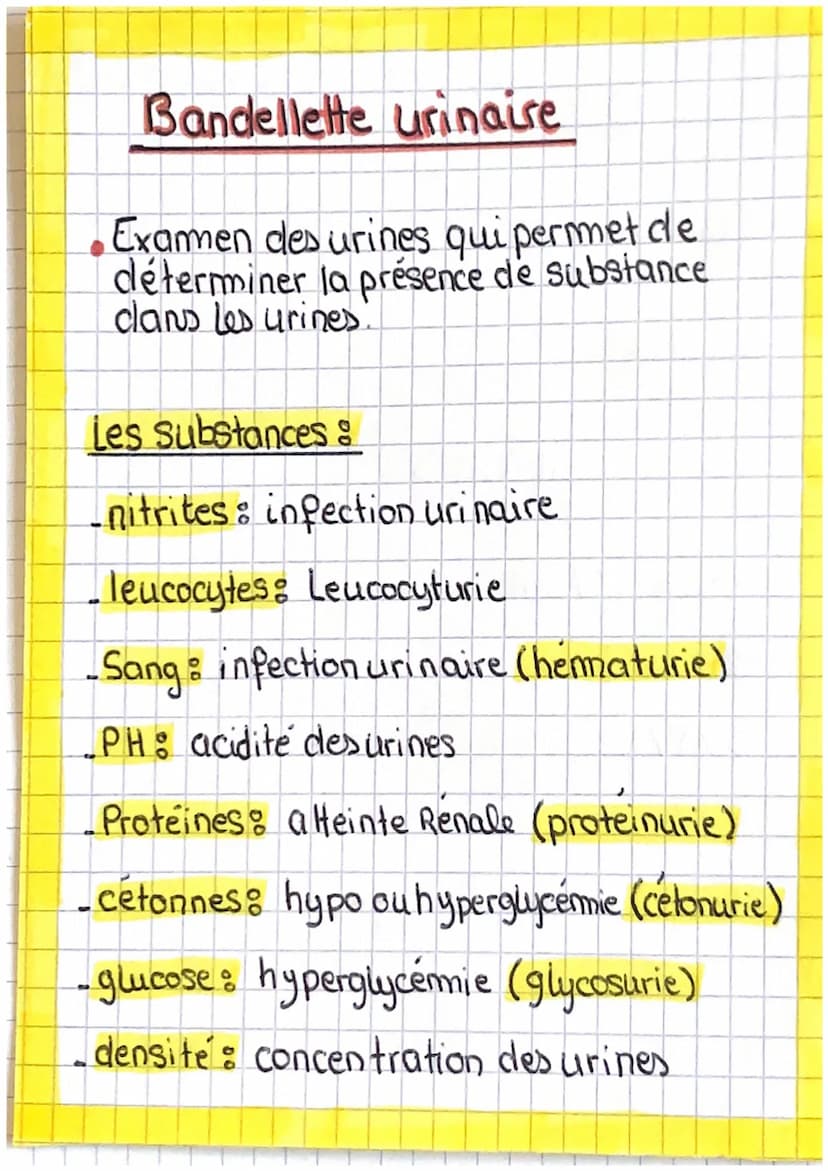 Bandellette urinaire
• Examen des urines qui permet de
déterminer la présence de substance
dans les urines.
Les substances :
- nitrites : infection urinaire
- leucocytes : Leucocyturie
- Sang : infection urinaire (hématurie)
- PH : acidité des urines
- Protéines : atteinte Rénale (protéinurie)
- cétonnes : hypo ou hyperglycémie (cétonurie)
- glucose : hyperglycémie (glycosurie)
- densité : concentration des urines